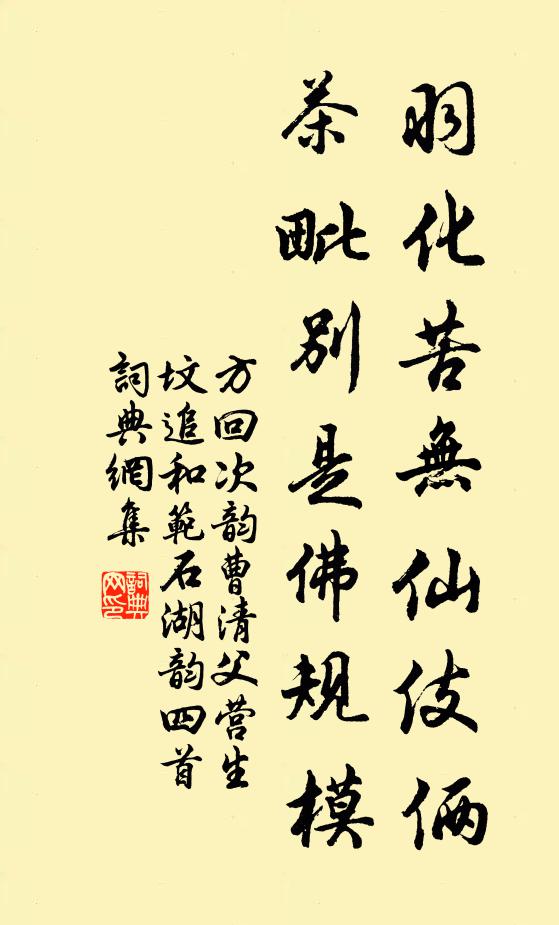 羽化苦無仙伎倆
荼毗別是佛規模
方回次韵曹清父营生
坟追和範石湖韵四首
詞典網集
詞典網印